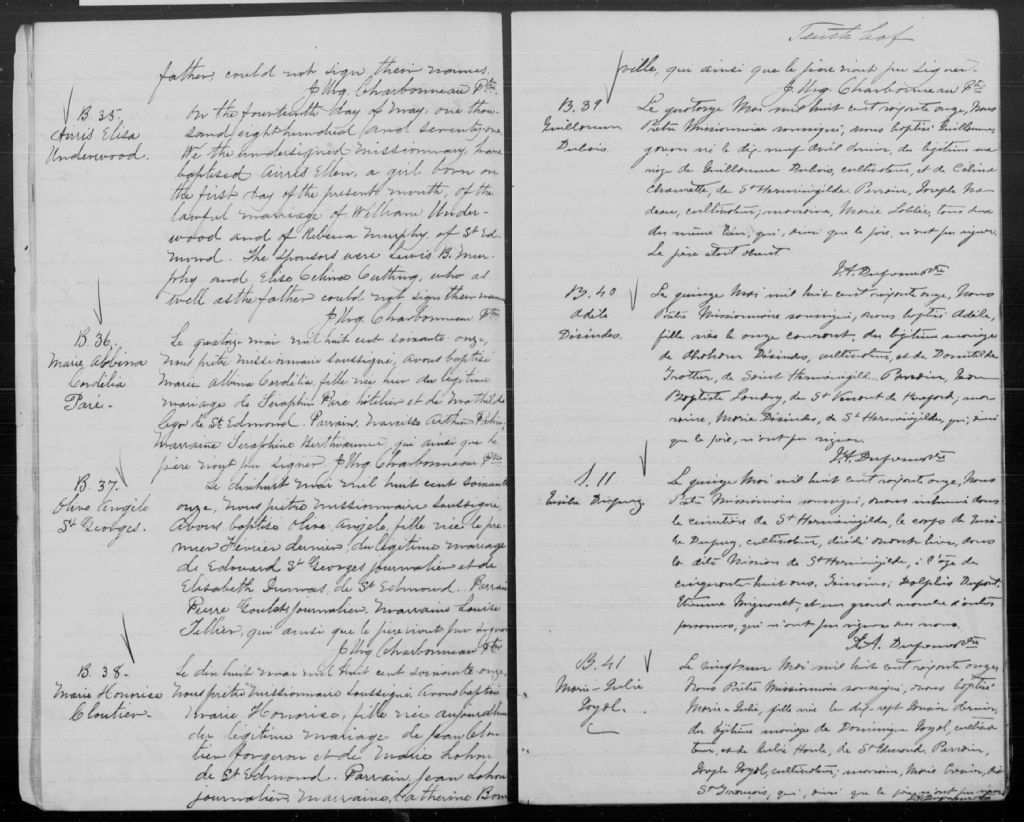 father, could not sign their names.
J. Urg. Charbonneau Ptre
B. 35.
Airris Elisa
Underwood.
On the fourteenth day of May, one thou-
sand eight hundred and seventy one
We the undersigned missionary have
baptised Airris Ellen, a girl born on
the first day of the present month, of the
lawful marriage of William Under-
wood and of Rebena Murphy, of St Ed-
mond. The sponsors were Lewis B. Mur-
phy and Elisa Celina Cutting, who as
well as the father could not sign their names
J. Urg. Charbonneau Ptre
B. 36.
Marie Albina
Cordélia
Paré.
Le quatorze mai mil huit cent soixante onze,
nous prêtre missionnaire soussigné, avons baptisé
Marie Albina Cordélia, fille née hier du légitime
mariage de Séraphin Paré hôtelier et de Mathilde
de St Edmond. Parrain, Narcisse Arthur
Marraine Séraphine Berthiaume, qui ainsi que le
père n'ont pu signer. J. Urg. Charbonneau Ptre
B. 37.
Olive Angèle
St Georges.
Le dix huit mai mil huit cent soixante
onze, nous prêtre missionnaire soussigné,
Avons baptisé Olive Angèle, fille née le pre-
mier Février dernier, du légitime mariage
de Edouard St Georges journalier et de
Elisabeth Dumas, de St Edmond. Parrain
Pierre Goulet, journalier, Marraine Louise
Tellier, qui ainsi que le père n'ont pu signer
J. Urg. Charbonneau Ptre
B. 38.
Marie Honorise
Cloutier.
Le dix huit mai mil huit cent soixante onze,
Nous prêtre missionnaire soussigné, Avons baptisé
Marie Honorise, fille née aujourd'hui
du légitime mariage de Jean Clou-
tier forgeron et de Marie Lohon
de St Edmond. Parrain, Jean Lohon
journalier, Marraine, Catherine Bon
Tenth leaf
ville, qui ainsi que le père n'ont pu signer.
J. Urg. Charbonneau Ptre
B. 39
Guillaume
Dubois.
Le quatorze Mai mil huit cent soixante onze, Nous
Prêtre Missionnaire soussigné, avons baptisé Guillaume,
garçon né le dix-neuf Avril dernier, du légitime ma-
riage de Guillaume Dubois, cultivateur, et de Célina
Chouette, de St Herménégilde. Parrain, Joseph Na-
deau, cultivateur; marraine, Marie Loblée, tous deux
du même lieu; qui, ainsi que le père, n'ont pu signer.
Le père étant absent.
J. A. Dufresne Ptre
B. 40
Adèle
Désindes.
Le quinze Mai mil huit cent soixante onze, Nous
Prêtre Missionnaire soussigné, avons baptisé Adèle,
fille née le onze courant, du légitime mariage
de Désindes, cultivateur, et de Domitilde
Trottier, de Saint Herménégilde. Parrain, Jean
Baptiste Landry, de St Venant de Hereford; mar-
raine, Marie Désindes, de St Herménégilde, qui, ainsi
que le père, n'ont pu signer.
J. A. Dufresne Ptre
S. 11
Dupuy
Le quinze Mai mil huit cent soixante onze, Nous
Prêtre Missionnaire soussigné, avons inhumé dans
le cimetière de St Herménégilde, le corps de
Dupuy, cultivateur, décédé avant-hier, dans
la dite Mission de St Herménégilde, à l'âge de
cinquante-huit ans. Témoins; Dolphis Dupont,
Etienne Mignault, et un grand nombre d'autres
personnes, qui n'ont pu signer avec nous.
J. A. Dufresne Ptre
B. 41
Marie-Julie
Joyal.
Le vingt-un Mai mil huit cent soixante onze,
Nous Prêtre Missionnaire soussigné, avons baptisé
Marie-Julie, fille née le dix-sept Janvier dernier,
du légitime mariage de Dominique Joyal, cultiva-
teur, et de Julie Houle, de St Edmond. Parrain,
Joseph Joyal, cultivateur; marraine, Marie de
St François, qui, ainsi que le père n'ont pu signer
J. A. Dufresne Ptre